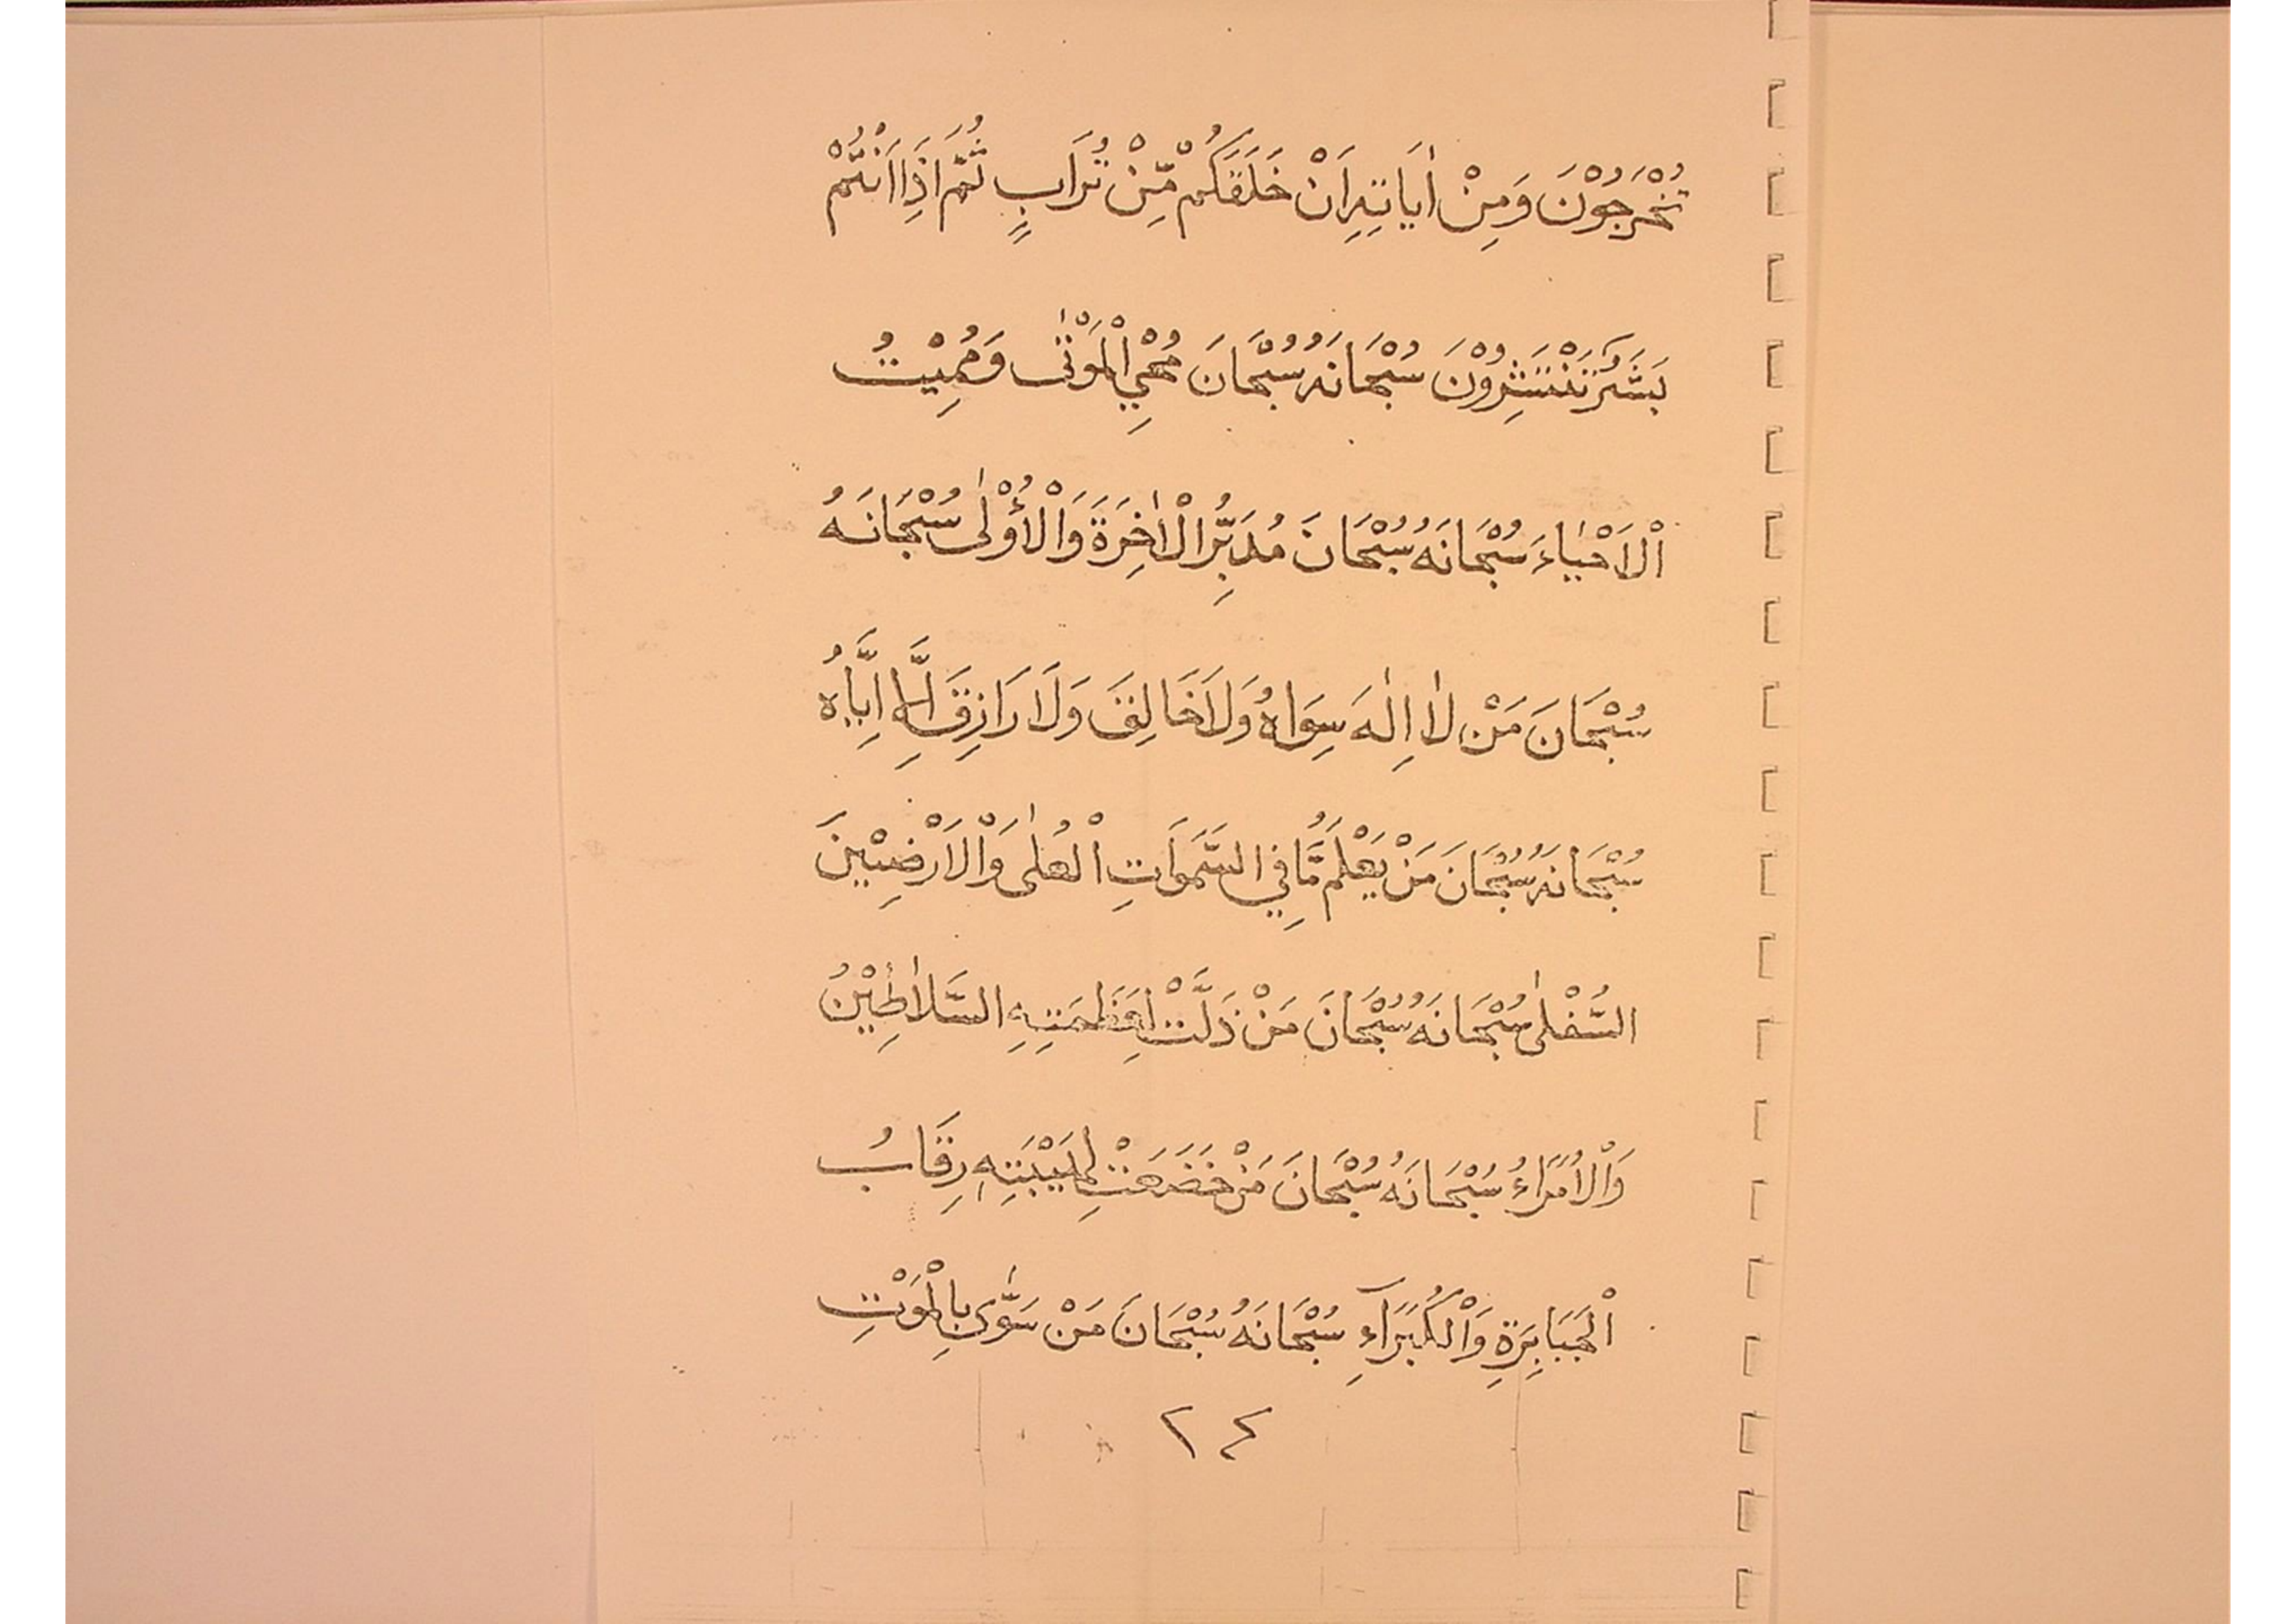 تُخْرَجُوْنَ وَمِنْ اٰيَاتِهِ اَنْ خَلَقَكُمْ مِّنْ تُرَابٍ ثُمَّ اِذَا اَنْتُمْ
بَشَرٌ تَنْتَشِرُوْنَ سُبْحَانَهُ سُبْحَانَ مُحْيِ الْمَوْتٰى وَمُمِيْتُ
اْلاَحْيَاءَ سُبْحَانَهُ سُبْحَانَ مُدَبِّرُ الْاٰخِرَةَ وَاْلأُوْلٰى سُبْحَانَهُ
سُبْحَانَ مَنْ لاٰ اِلٰهَ سِوَاهُ وَلاَ خَالِقَ وَلاَ رَازِقَ اِلَّا اِيَّاهُ
سُبْحَانَهُ سُبْحَانَ مَنْ يَعْلَمُ مَّا فِي السَّمَوَاتِ اْلعُلٰى وَاْلاَرْضِيْنَ
السُّفْلٰى سُبْحَانَهُ سُبْحَانَ مَنْ ذَلَّتْ لِعَظَمَتِهِ السَّلاٰطِيْنُ
وَاْلاُمَرَاءُ سُبْحَانَهُ سُبْحَانَ مَنْ خَضَعَتْ لِهَيْبَتِهِ رِقَابُ
اْلجَبَابِرَةِ وَاْلكُبَرَآءِ سُبْحَانَهُ سُبْحَانَ مَنْ سَوّٰى بِالْمَوْتِ
٢٤